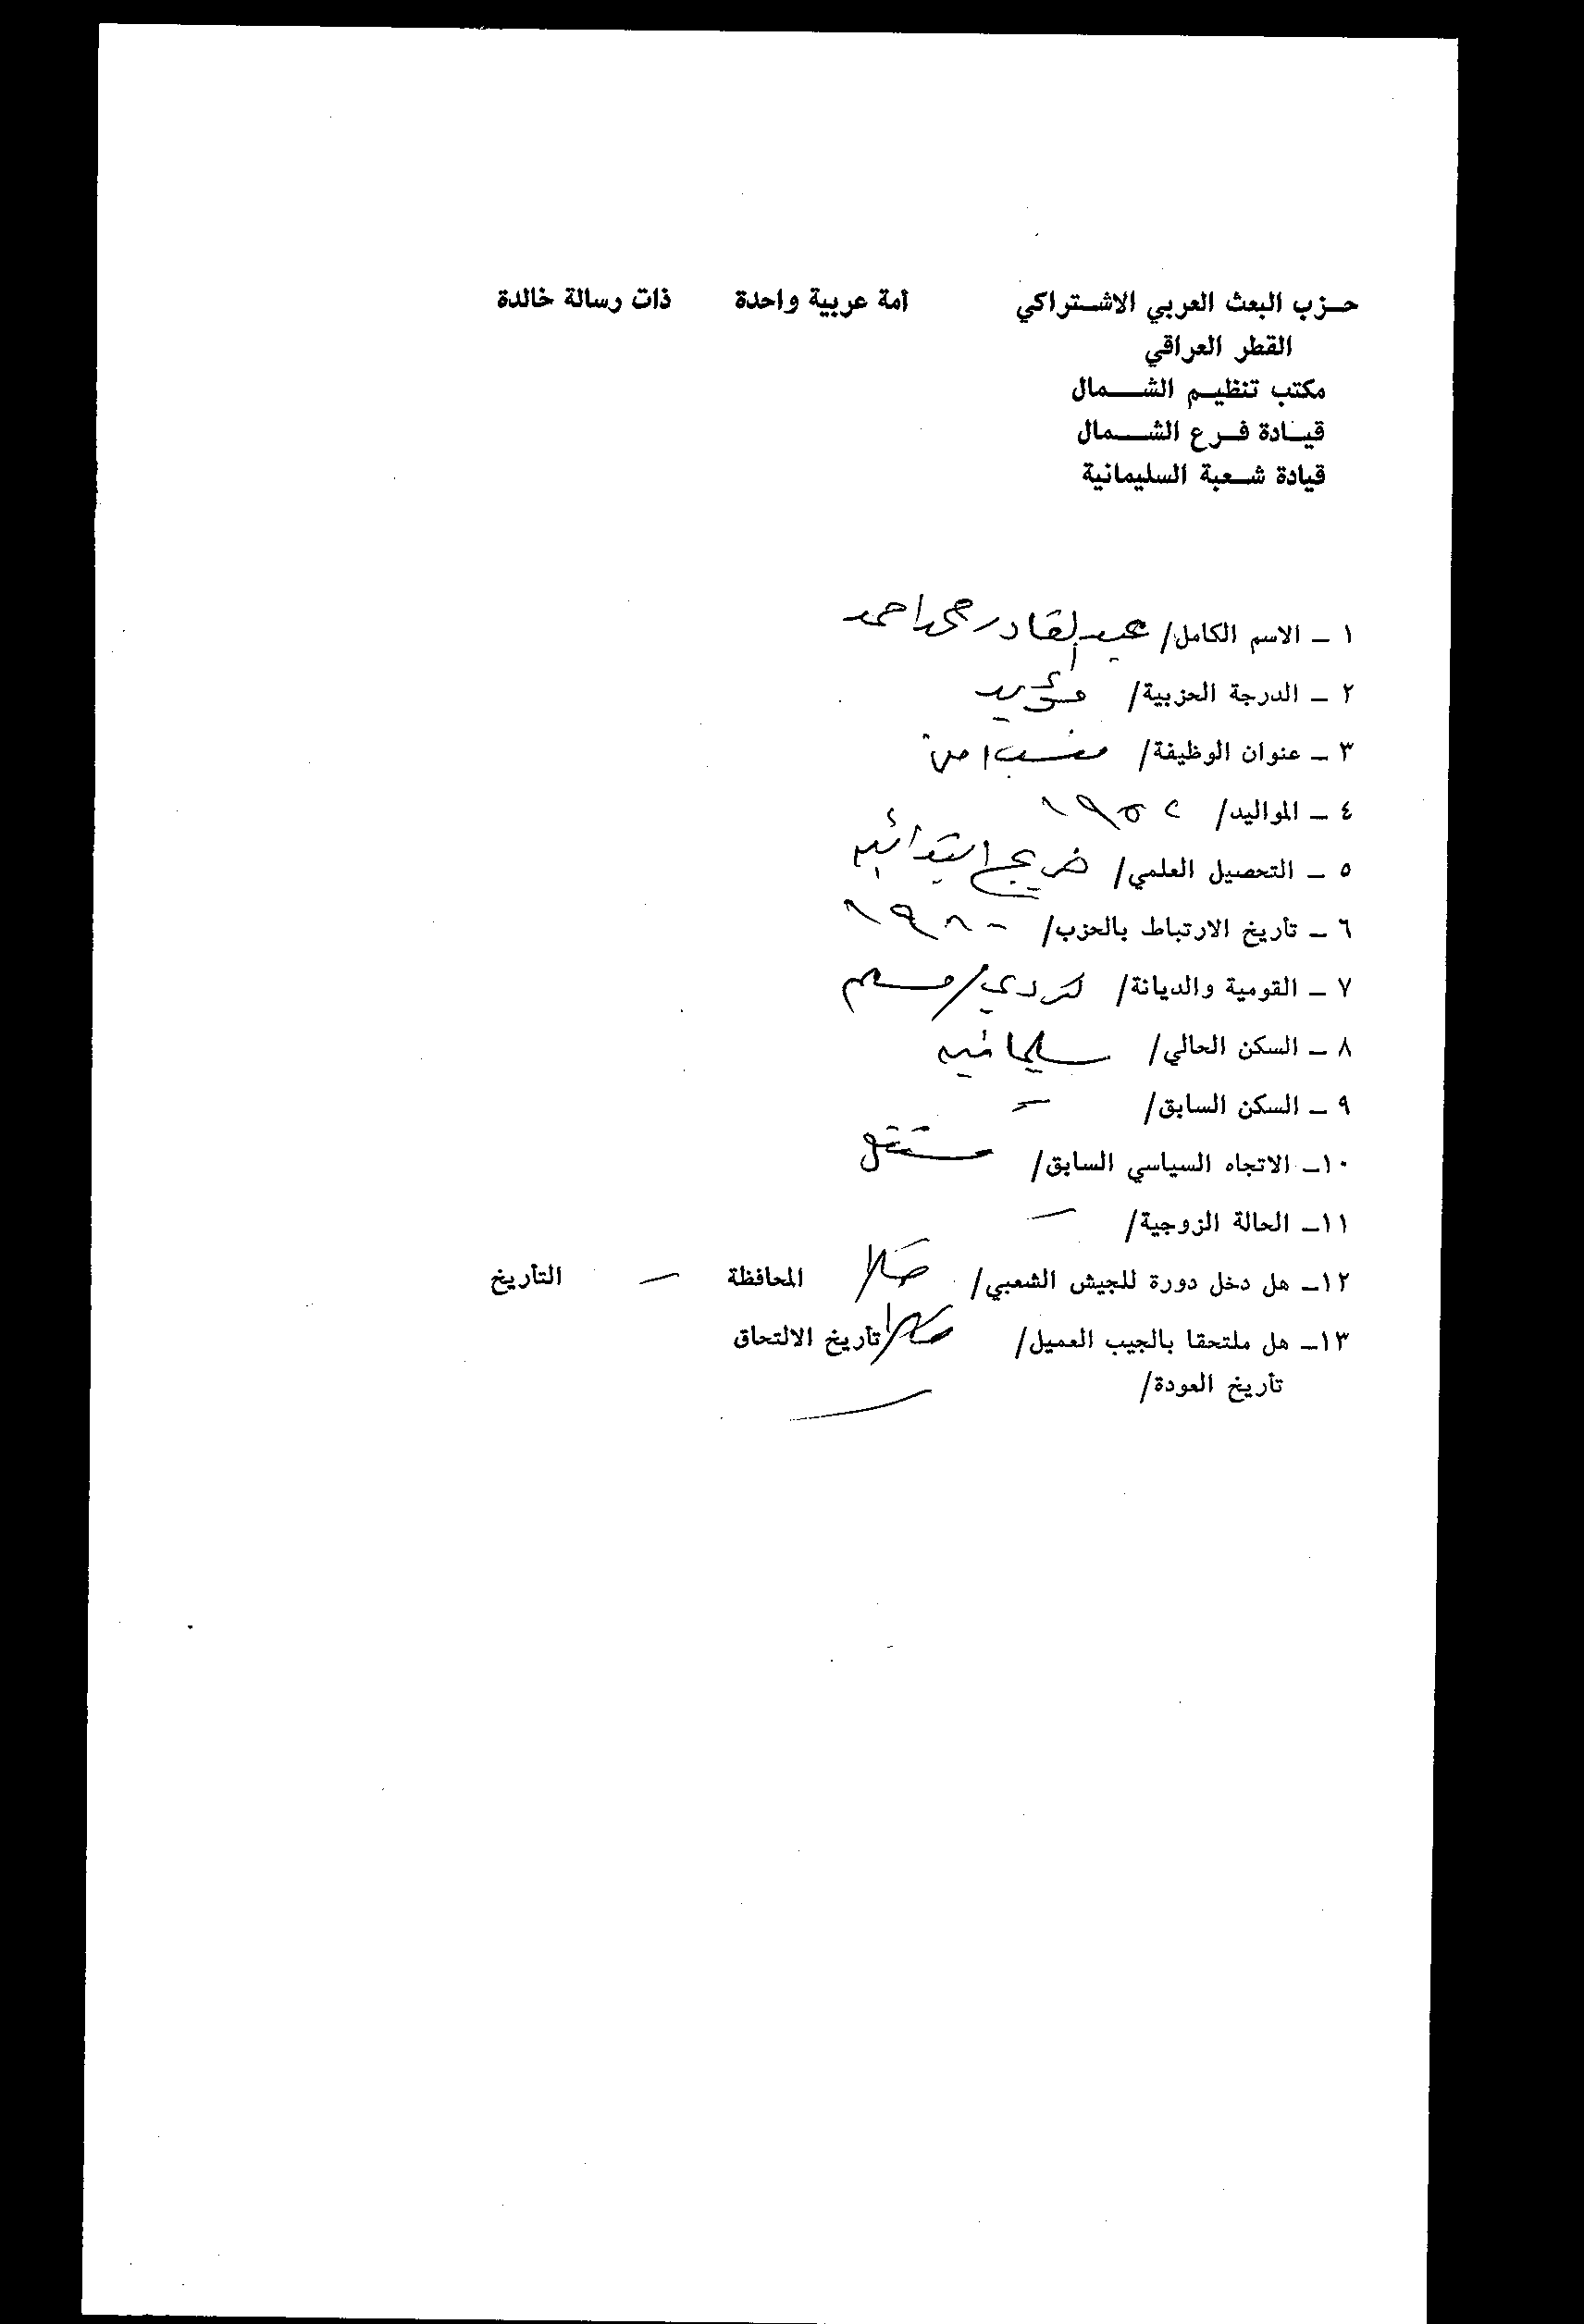 حزب البعث العربي الاشتراكي أمة عربية واحدة ذات رسالة خالدة
القطر العراقي
مكتب تنظيم الشمال
قيادة فرع الشمال
قيادة شعبة السليمانية
١ – الاسم الكامل/ عبد القادر محمد احمد
٢ – الدرجة الحزبية/ مؤيد
٣ – عنوان الوظيفة/ امن
٤ – المواليد/ ١٩٥٢
٥ – التحصيل العلمي/ خريج ابتدائيه
٦ – تأريخ الارتباط بالحزب/ ١٩٨٠
٧ – القومية والديانة/ كردي/مسلم
٨ – السكن الحالي/ سليمانيه
٩ – السكن السابق/ =
١٠– الاتجاه السياسي السابق/ مستقل
١١– الحالة الزوجية/ –
١٢– هل دخل دورة للجيش الشعبي/ كلا المحافظة – التأريخ
١٣– هل ملتحقا بالجيب العميل/ كلا تأريخ الالتحاق
تأريخ العودة/ –